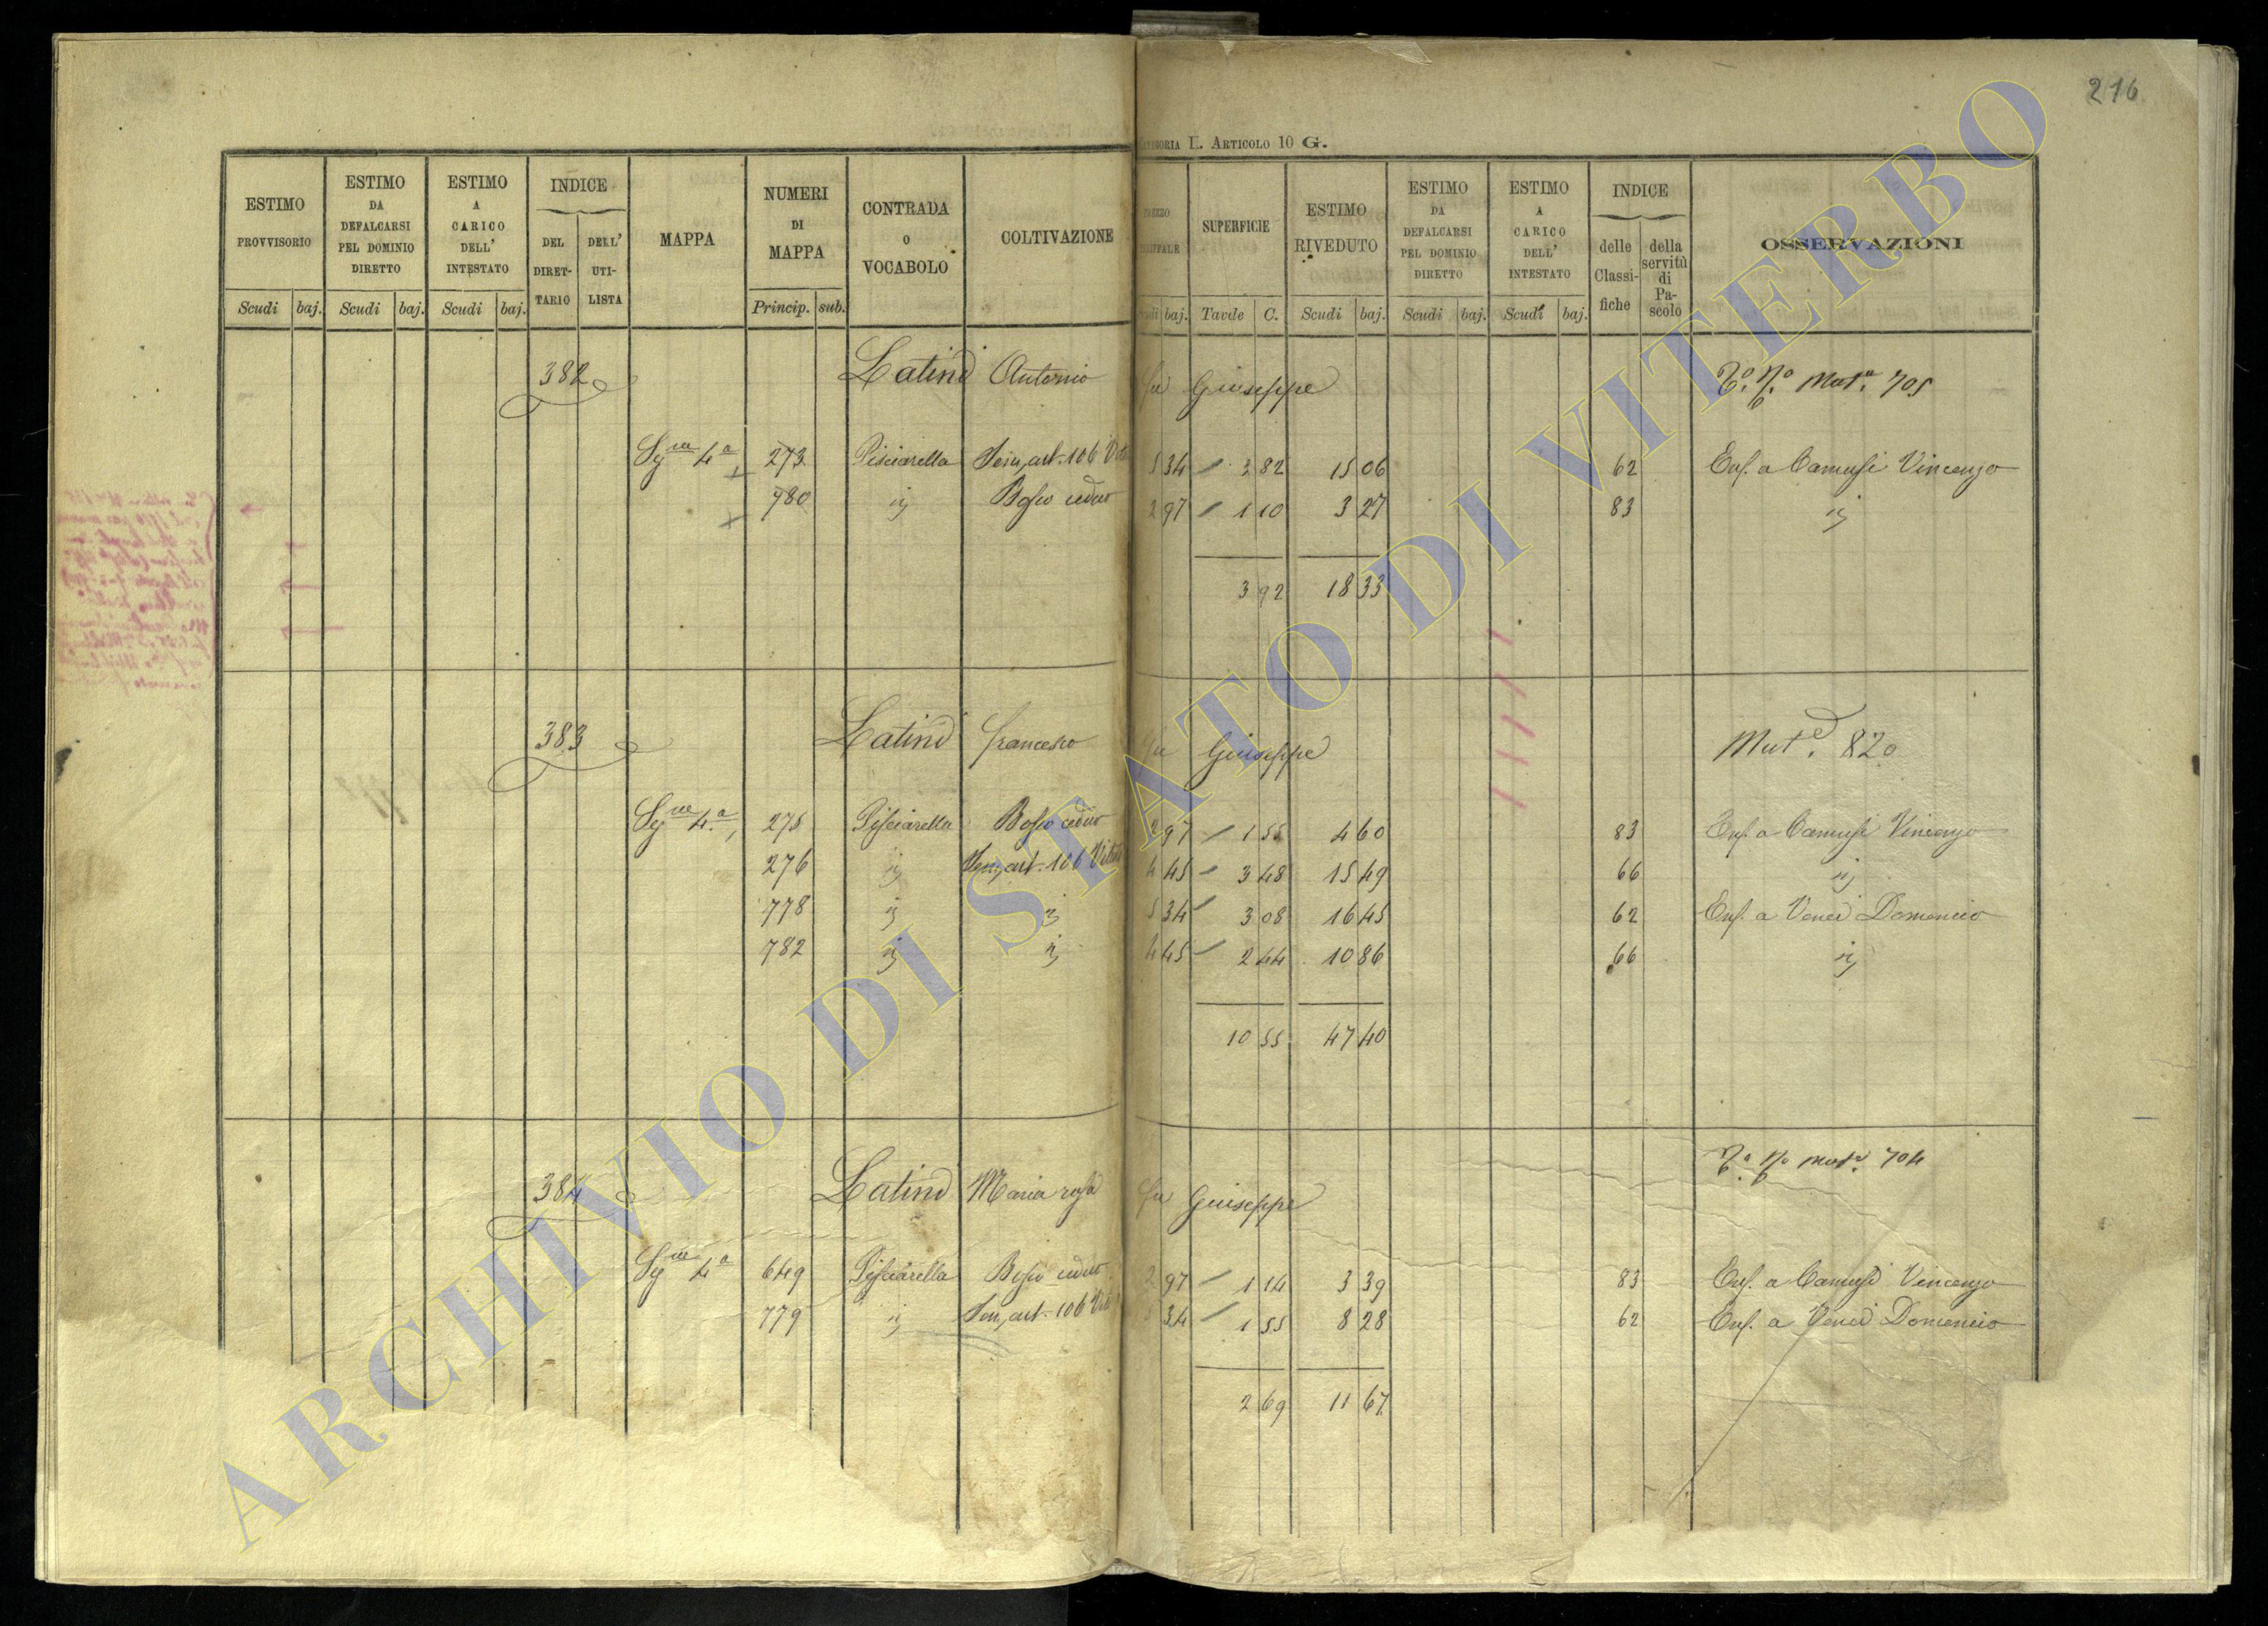 216
CATEGORIA I. ARTICOLO 10 G.
ESTIMO PROVVISORIO
Scudi baj.
ESTIMO DA DEFALCARSI PEL DOMINIO DIRETTO
Scudi baj.
ESTIMO A CARICO DELL' INTESTATO
Scudi baj.
INDICE
DEL DIRETTARIO
DELL' UTILISTA
MAPPA
NUMERI DI MAPPA
Princip. sub.
CONTRADA O VOCABOLO
COLTIVAZIONE
baj.
SUPERFICIE
Tavde C.
ESTIMO RIVEDUTO
Scudi baj.
ESTIMO DA DEFALCARSI PEL DOMINIO DIRETTO
Scudi baj.
ESTIMO A CARICO DELL' INTESTATO
Scudi baj.
INDICE
delle Classifiche
della servitù di Pascolo
OSSERVAZIONI
382 Latini Antonio fu Giuseppe Mut. 705
Sez. 4a 273 Pisciarella Sem. art. 106 5 34 3 82 15 06 62 Enf. a Camusi Vincenzo
780 ij Bosco ceduo 2 97 1 10 3 27 83 ij
3 92 18 33
383 Latini Francesco fu Giuseppe Mut. 820
4a 275 Pisciarella Bosco ceduo 2 97 1 55 4 60 83 Enf. a Camusi Vincenzo
276 ij Sem. art. 106 4 45 3 48 15 49 66 ij
778 ij ij 5 34 3 08 16 45 62 Enf. a Venei Domenico
782 ij ij 4 45 2 44 10 86 66 ij
10 55 47 40
384 Latini Maria rosa fu Giuseppe Mut. 704
4a 649 Pisciarella Bosco ceduo 2 97 1 14 3 39 83 Enf. a Camusi Vincenzo
779 ij Sem. art. 106 5 34 1 55 8 28 62 Enf. a Venei Domenico
2 69 11 67
ARCHIVIO DI STATO DI VITERBO